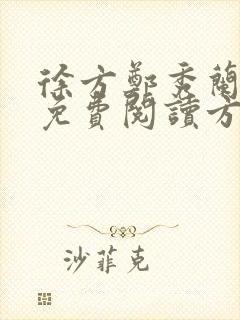 徐方鄭秀蘭
免費閱讀方
沙菲克